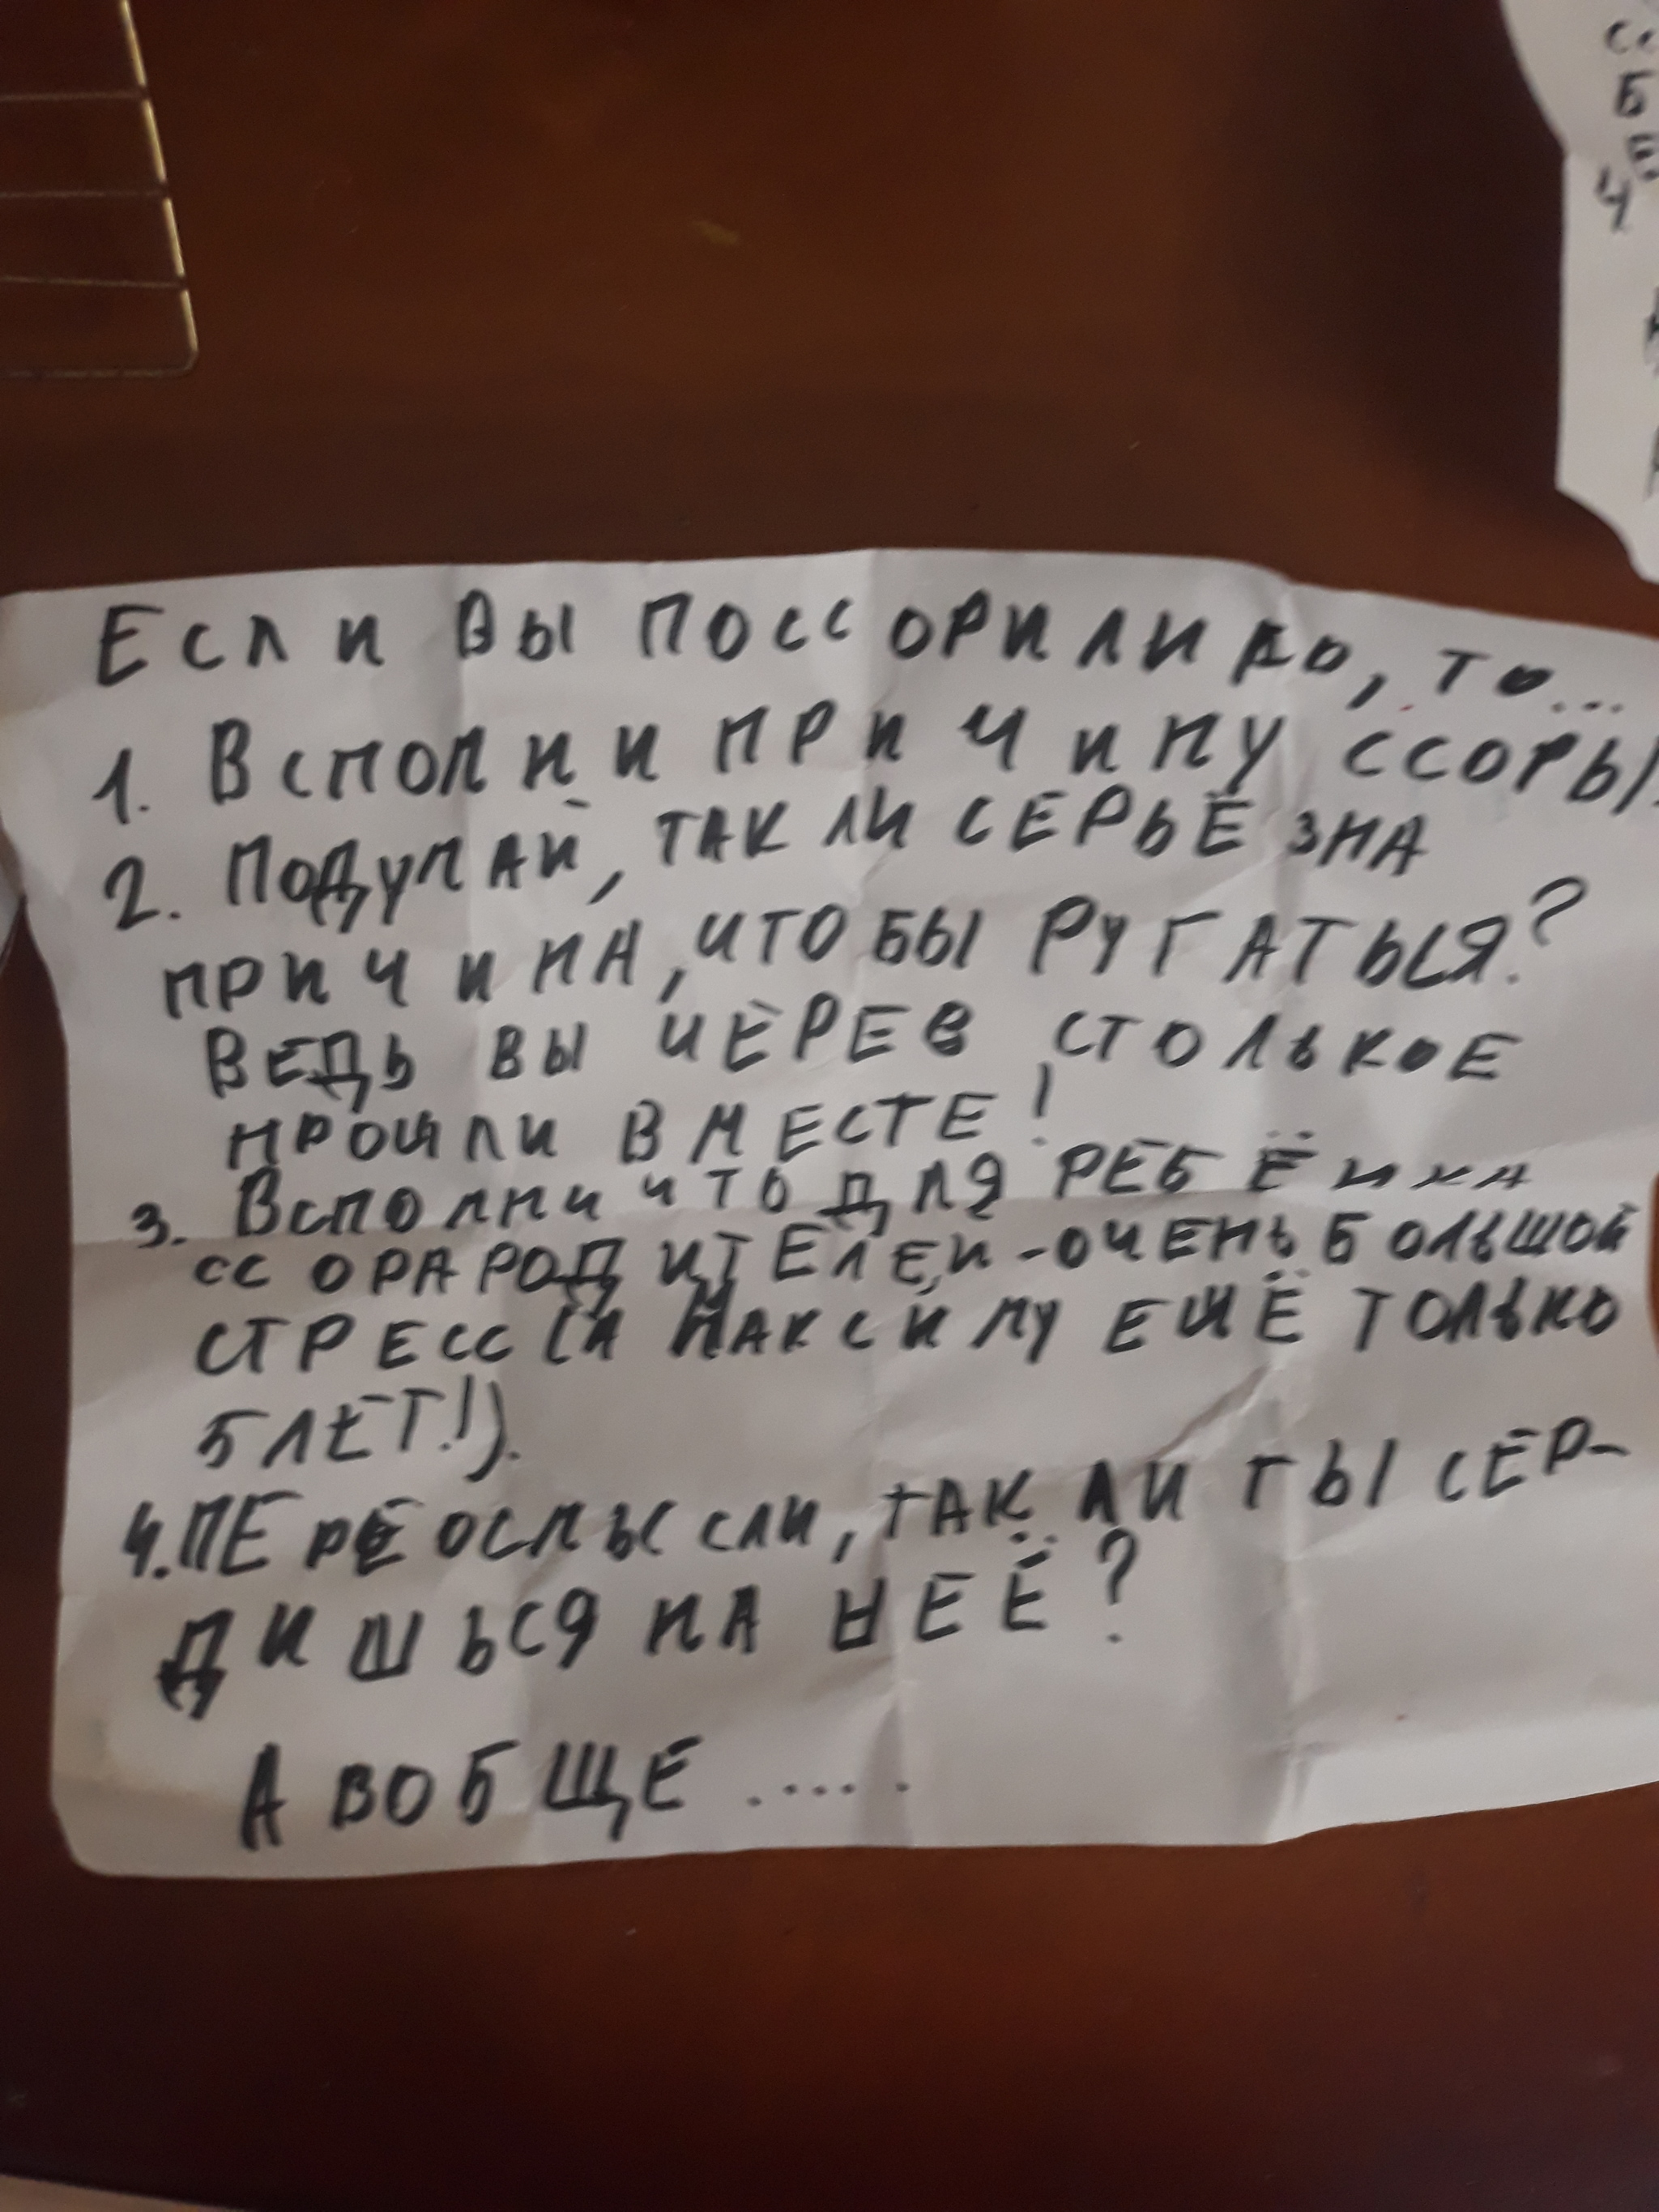 сс
Б
Е
Ч
Если вы поссорились, то...
1. Вспомни причину ссоры.
2. Подумай, так ли серьёзна
причина, чтобы ругаться?
Ведь вы через столькое
прошли вместе!
3. Вспомни что для ребёнка
ссора родителей - очень большой
стресс (а Максиму ещё только
5 лет!).
4. Переосмысли, так ли ты сер-
дишься на неё?
А вообще .....